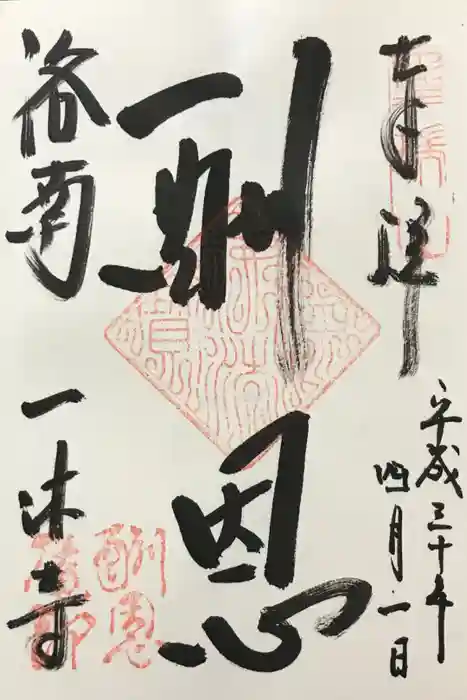 奉拝
平成三十年
四月一日
酬恩
洛南
一休寺
酬恩